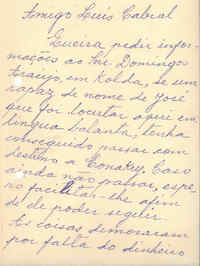 Amigo Luís Cabral
Queira pedir infor-
mações ao Snr. Domingos
Araujo, em Kolda, se um
rapaz de nome de José
que foi locutor aqui em
lingua balanta, tenha
conseguido passar com
destino a Conakry. Caso
ainda não passar, espe-
ro facilitar-lhe afim
de poder seguir.
As coisas demoraram
por falta do dinheiro